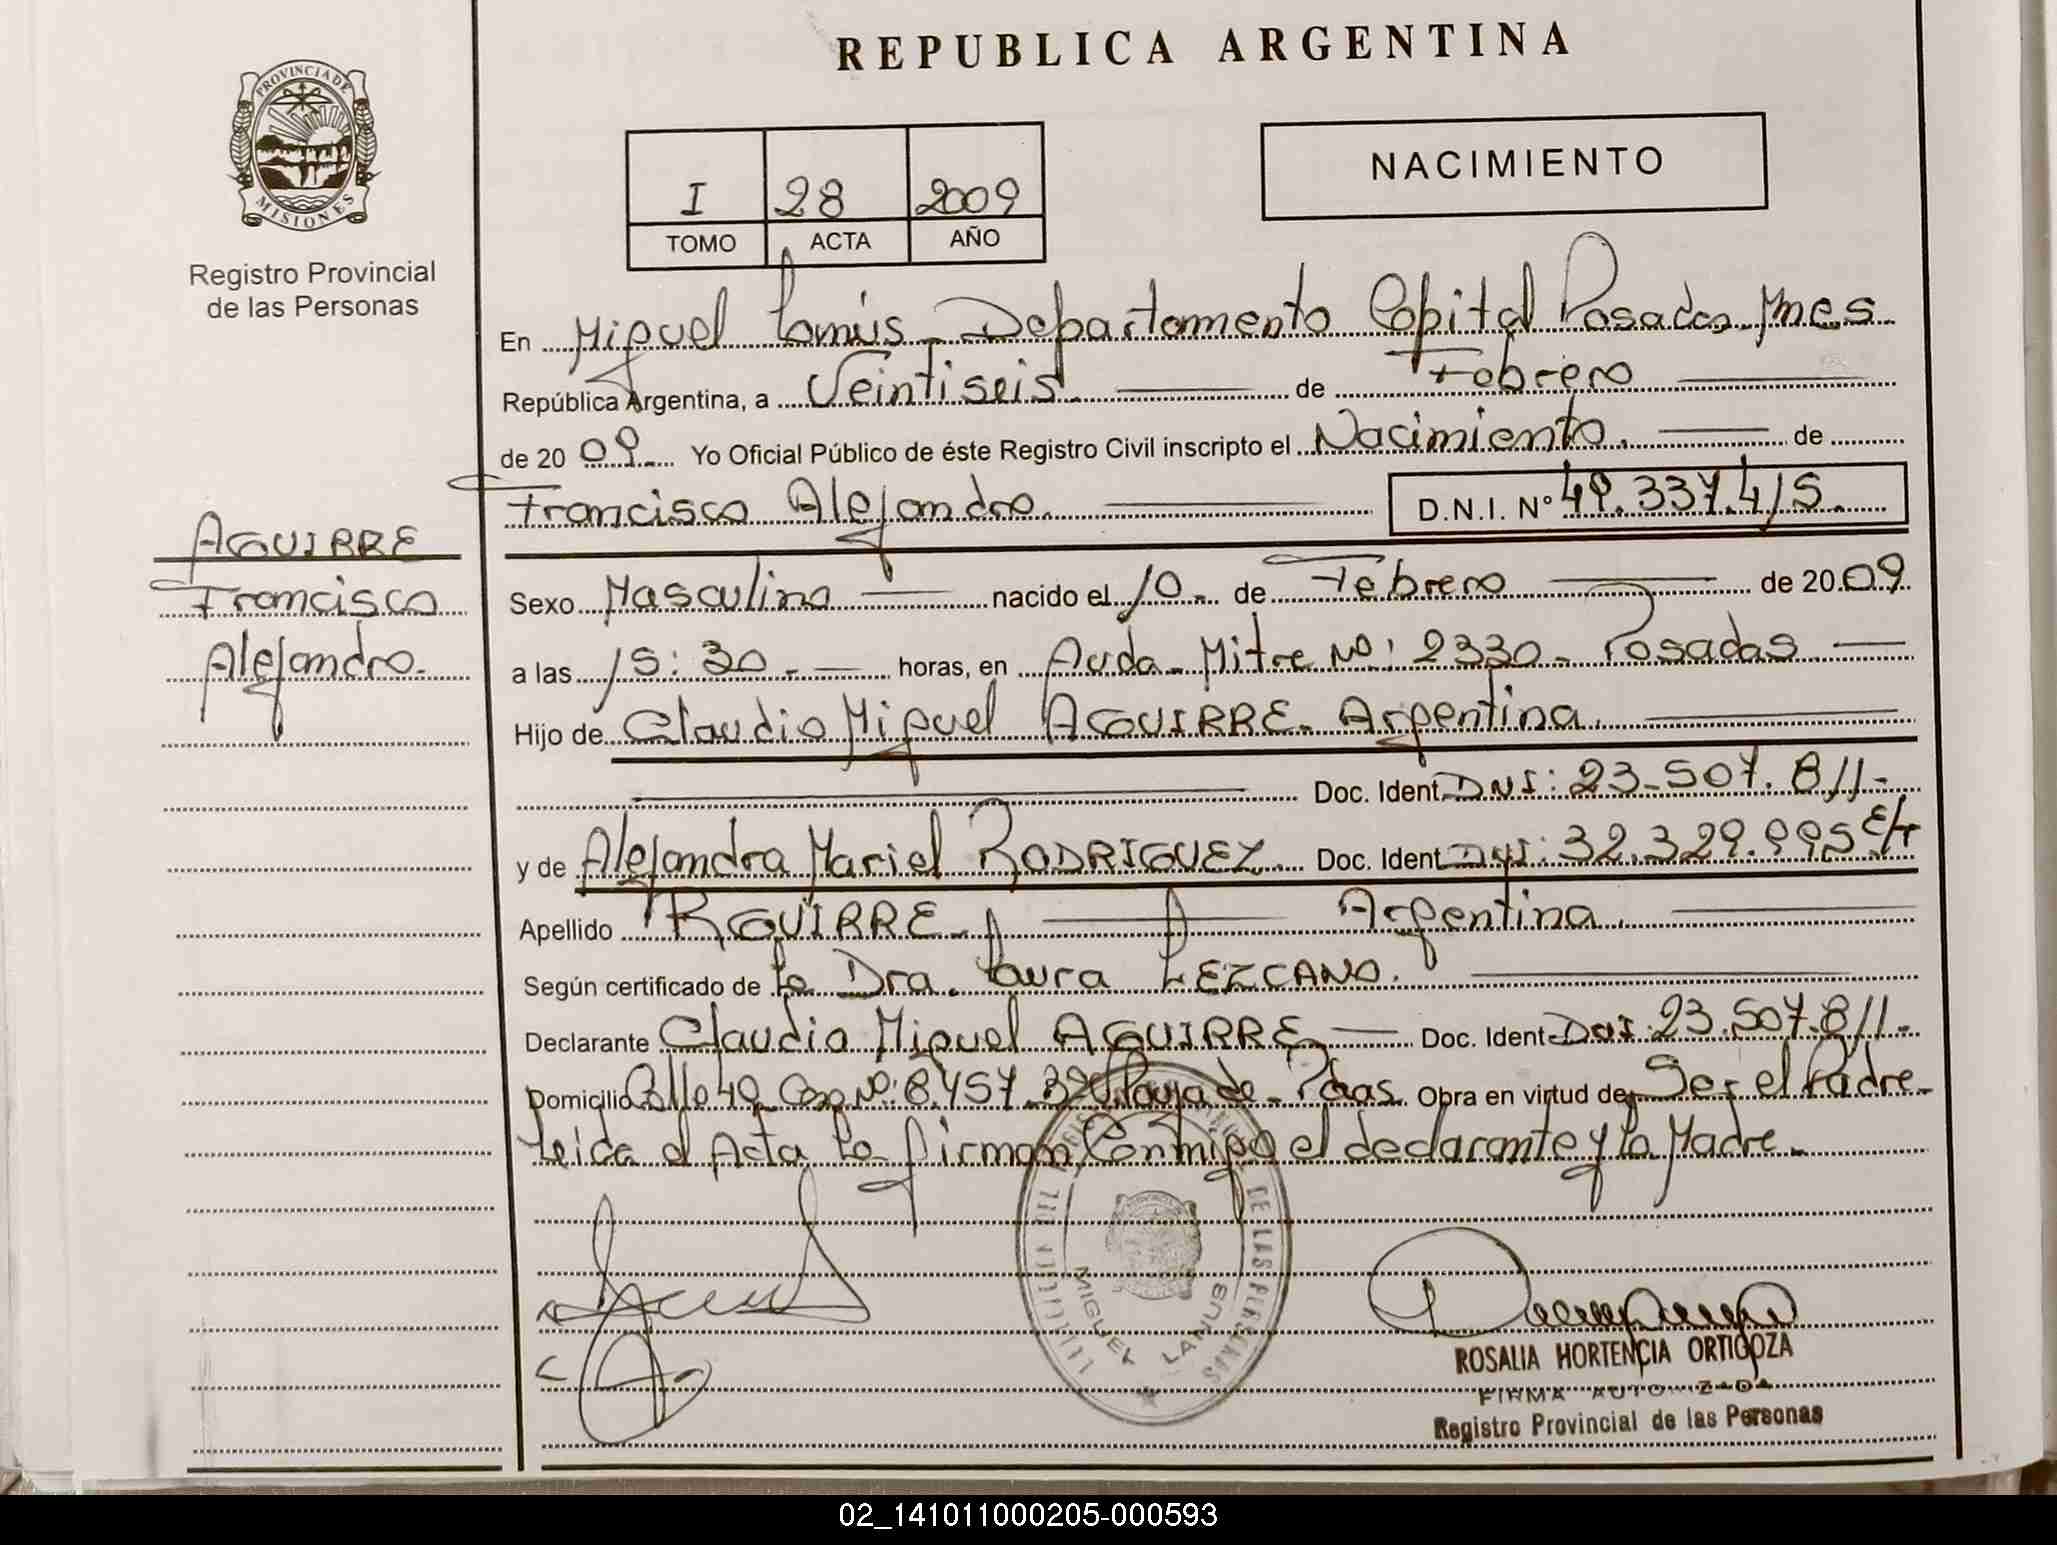 REPUBLICA ARGENTINA
PROVINCIA DE
MISIONES
Registro Provincial
de las Personas
I 28 2009
TOMO ACTA AÑO
NACIMIENTO
En Miguel Lanús. Departamento Capital Posadas Mnes
República Argentina, a Veintiseis de Febrero
de 2009. Yo Oficial Público de éste Registro Civil inscripto el Nacimiento. de
Francisco Alejandro. D.N.I. Nº 49.337.415.
AGUIRRE
Francisco
Alejandro.
Sexo Masculino nacido el 10. de Febrero de 2009.
a las 15:30. horas, en Avda. Mitre Nº: 2330. Posadas
Hijo de Claudio Miguel AGUIRRE. Argentina.
Doc. Ident. DNI: 23.507.811.
y de Alejandra Mariel RODRIGUEZ. Doc. Ident. DNI: 32.329.995
Apellido AGUIRRE. Argentina.
Según certificado de la Dra. Laura LEZCANO.
Declarante Claudio Miguel AGUIRRE Doc. Ident. DNI: 23.507.811.
Domicilio Calle 49 Casa Nº: 8457. de Pdas. Obra en virtud de Ser el Padre.
Leida el Acta la firman Conmigo el declarante y la Madre.
DE LAS PERSONAS
MIGUEL LANUS
ROSALIA HORTENCIA ORTIGOZA
FIRMA AUTORIZADA
Registro Provincial de las Personas
02_141011000205-000593